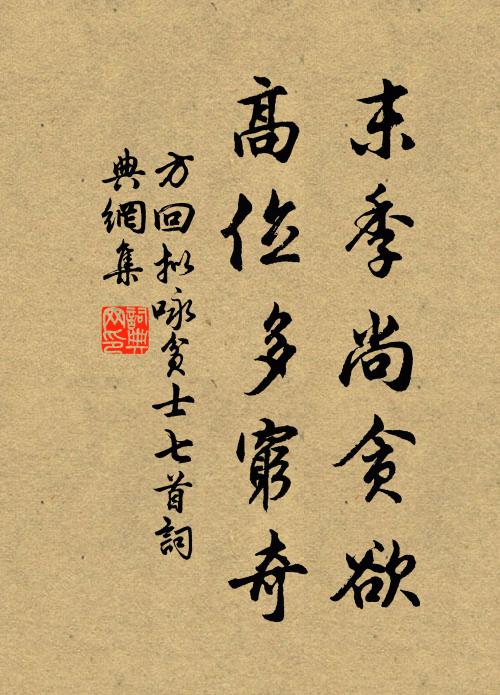 末季尚贪欲
高位多窮奇
方回拟咏贫士七首詞
典網集
詞典
网印